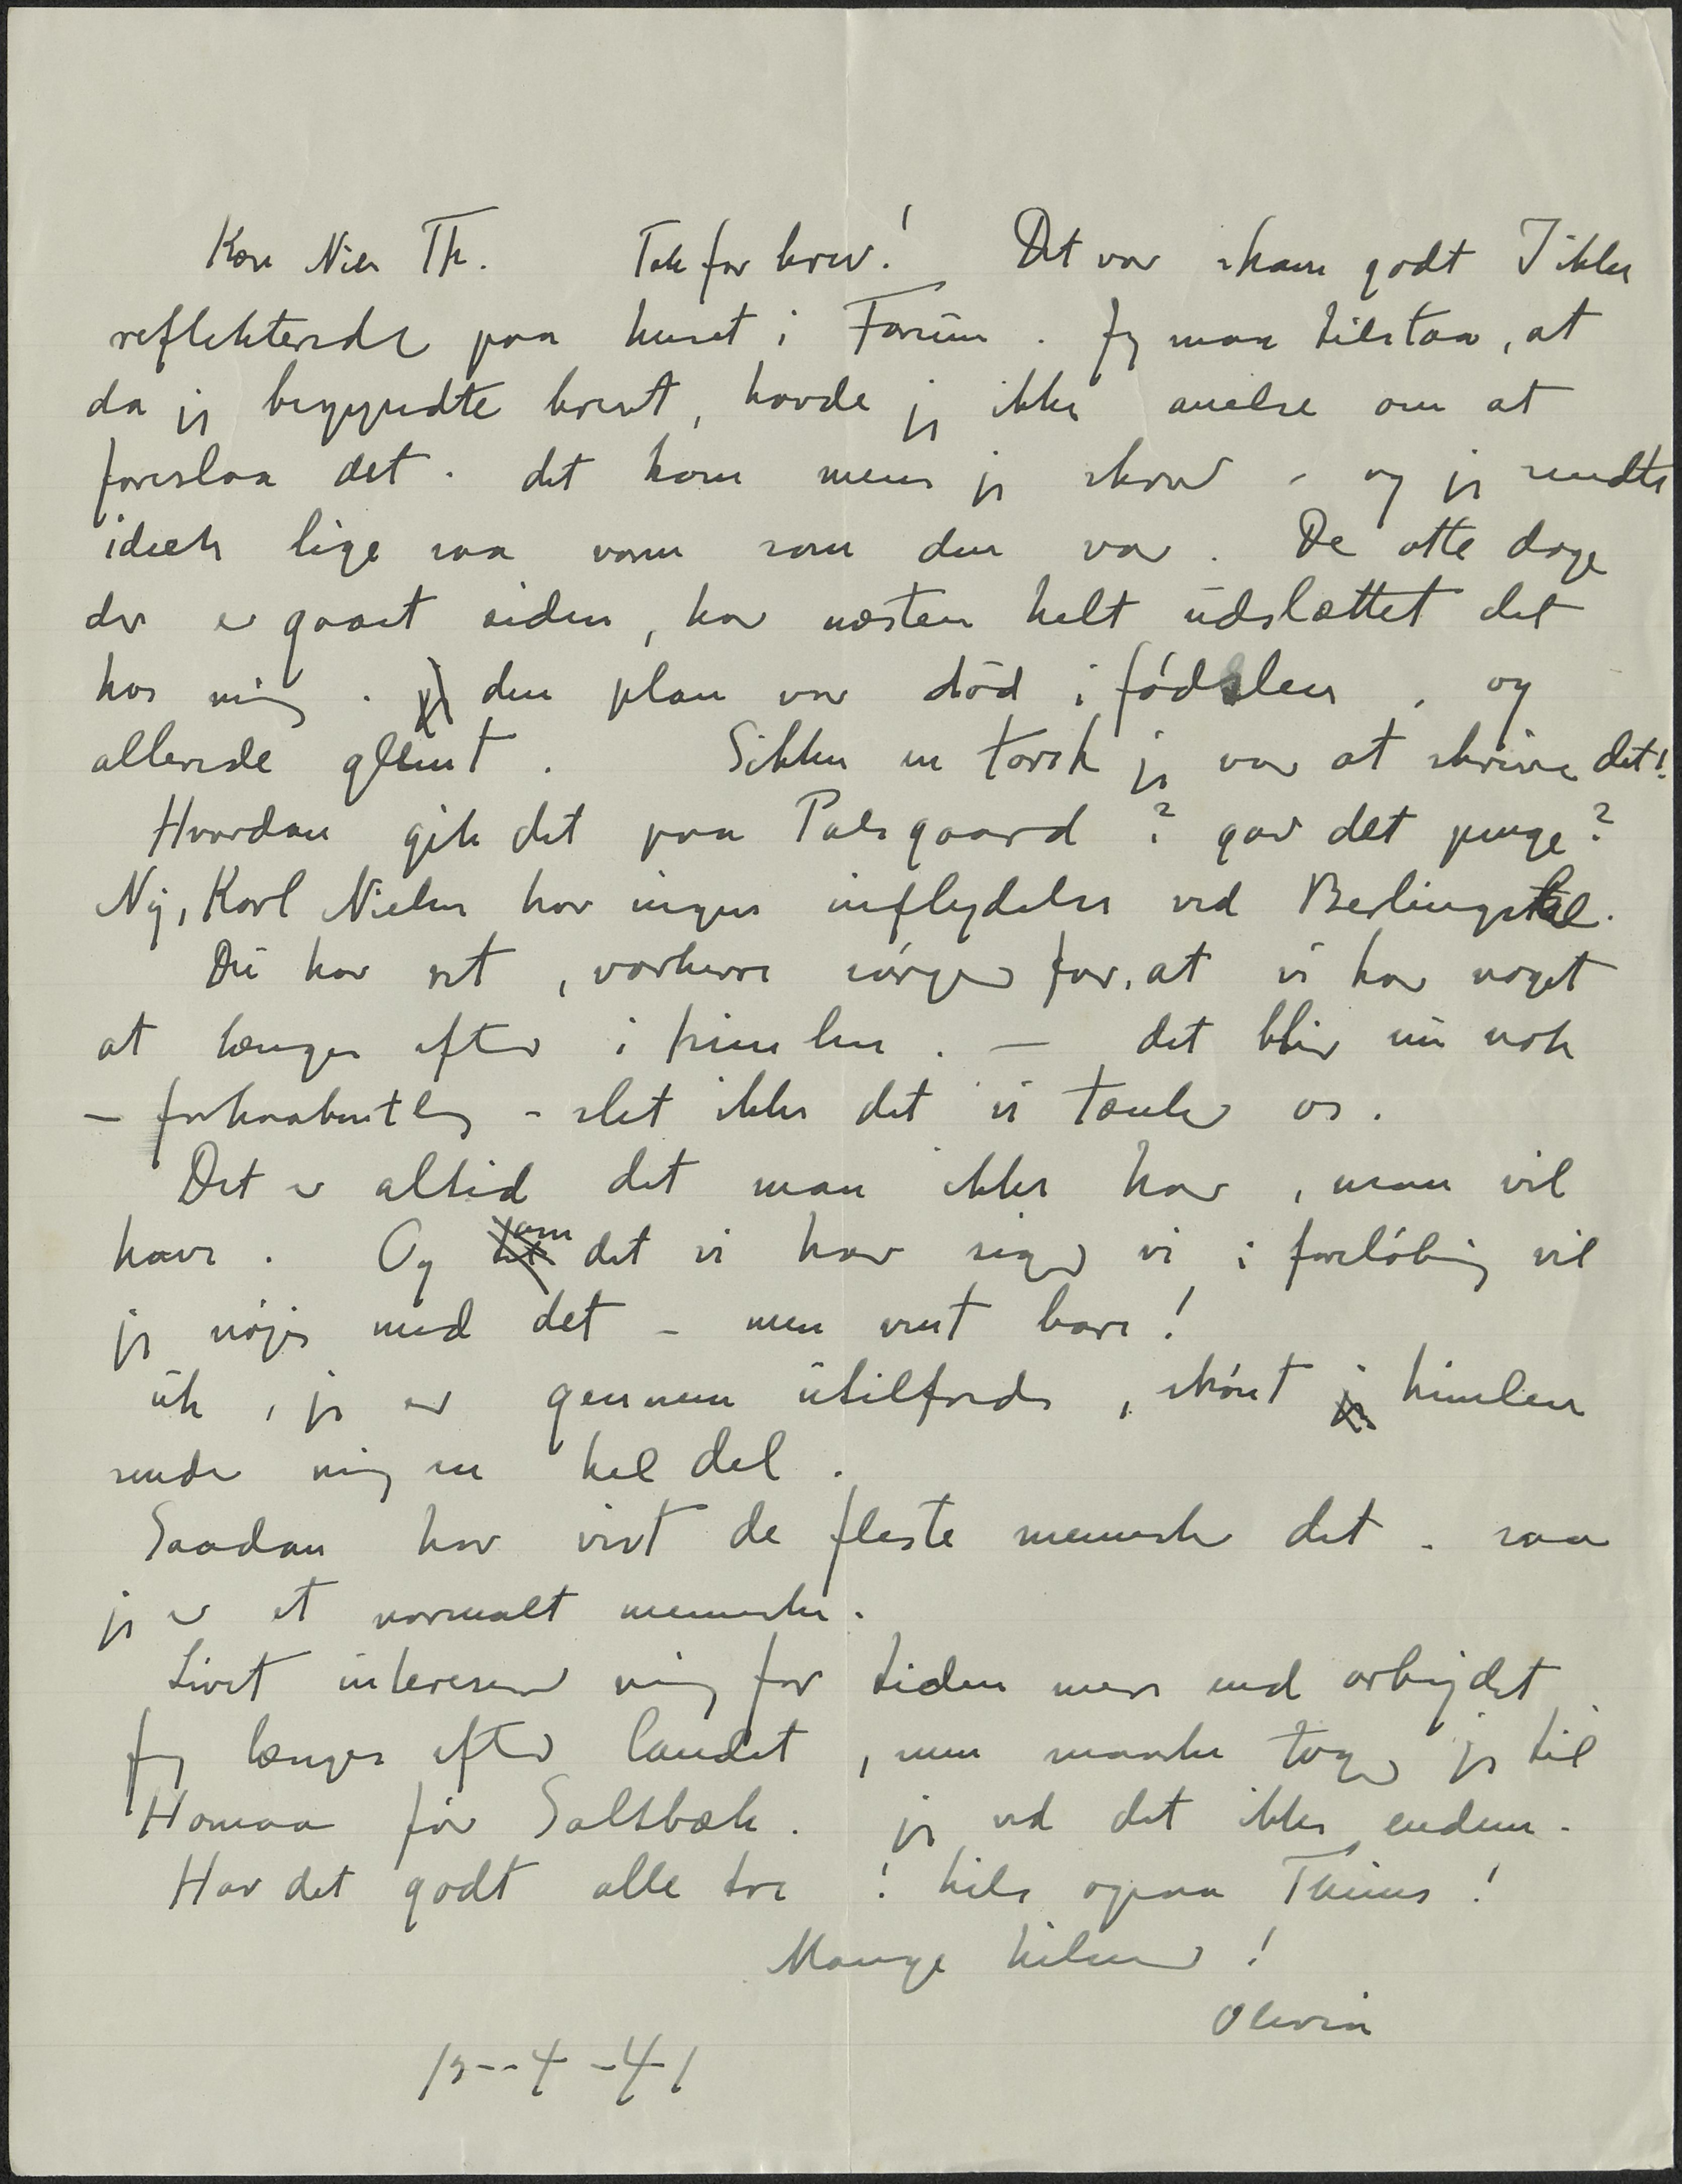 Kære Niels Th. Tak for brev! Det var skam godt I ikke
reflekterede paa huset i Farum. Jeg maa tilstaa, at
da jeg begyndte brevet, havde jeg ikke anelse om at
foreslaa det. det kom mens jeg skrev - og jeg sendte
ideen lige saa varm som den var. De otte dage
der er gaaet siden, har næsten helt udslættet det
hos mig. den plan var død i fødslen, og
allerede glemt. Sikken en torsk jeg var at skrive det!
Hvordan gik det paa Palsgaard? gav det penge?
Nej, Karl Nielsen har ingen inflydelse ved Berlingske.
Du har ret, vorherre sørger for, at vi har noget
at længes efter i himlen. — det bliv nu nok
- forhaabentlig - slet ikke det vi tænker os.
Det er altid det man ikke har, man vil
have. Og om det vi har siger vi: foreløbig vil
jeg nøjes med det - men vent bare!
uh, jeg er gennem utilfreds, skønt himlen
sender mig en hel del.
Saadan har vist de fleste mennesker det - saa
jeg er et normalt menneske.
Livet interesserer mig for tiden mere end arbejdet
Jeg længes efter landet, men maaske tager jeg til
Homaa før Saltbæk. jeg ved det ikke endnu.
Hav det godt alle tre! hils ogsaa Thiims!
Mange hilsner!
Olivia
13--4-41